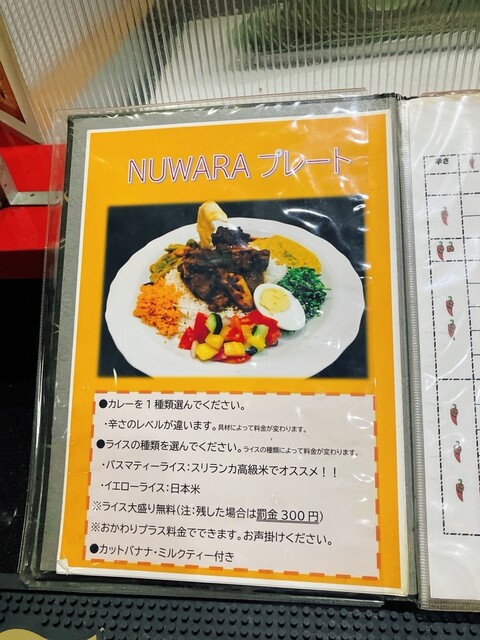 NUWARA プレート
●カレーを1種類選んでください。
・辛さのレベルが違います。具材によって料金が変わります。
●ライスの種類を選んでください。ライスの種類によって料金が変わります。
・バスマティーライス:スリランカ高級米でオススメ！！
・イエローライス:日本米
※ライス大盛り無料(注:残した場合は罰金300円)
※おかわりプラス料金でできます。お声掛けください。
●カットバナナ・ミルクティー付き
辛さ